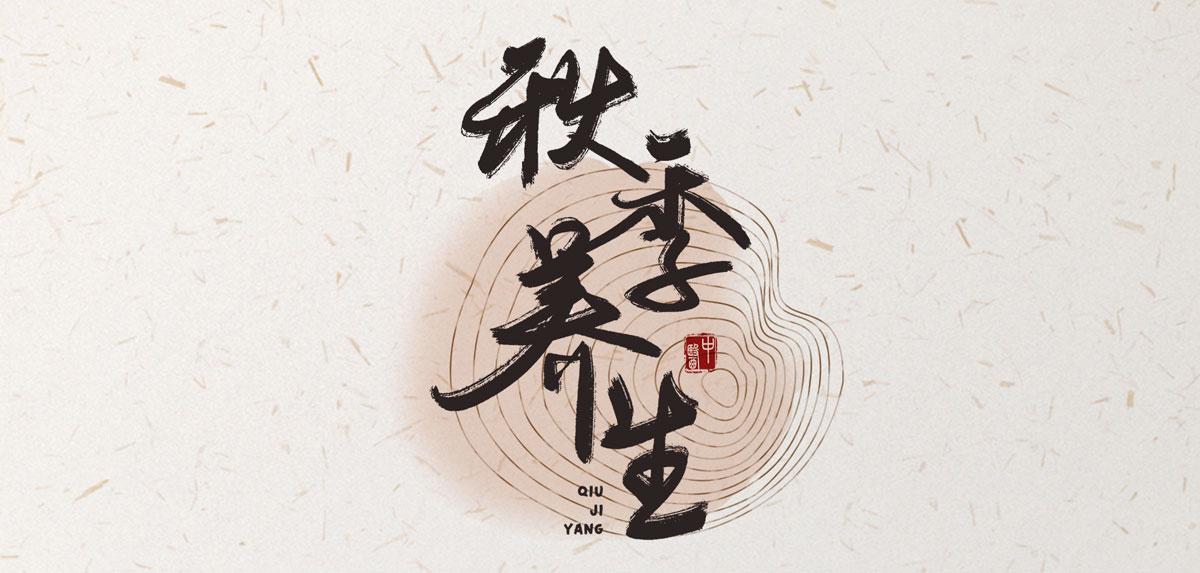 秋季养生
中醫
QIU
JI
YANG